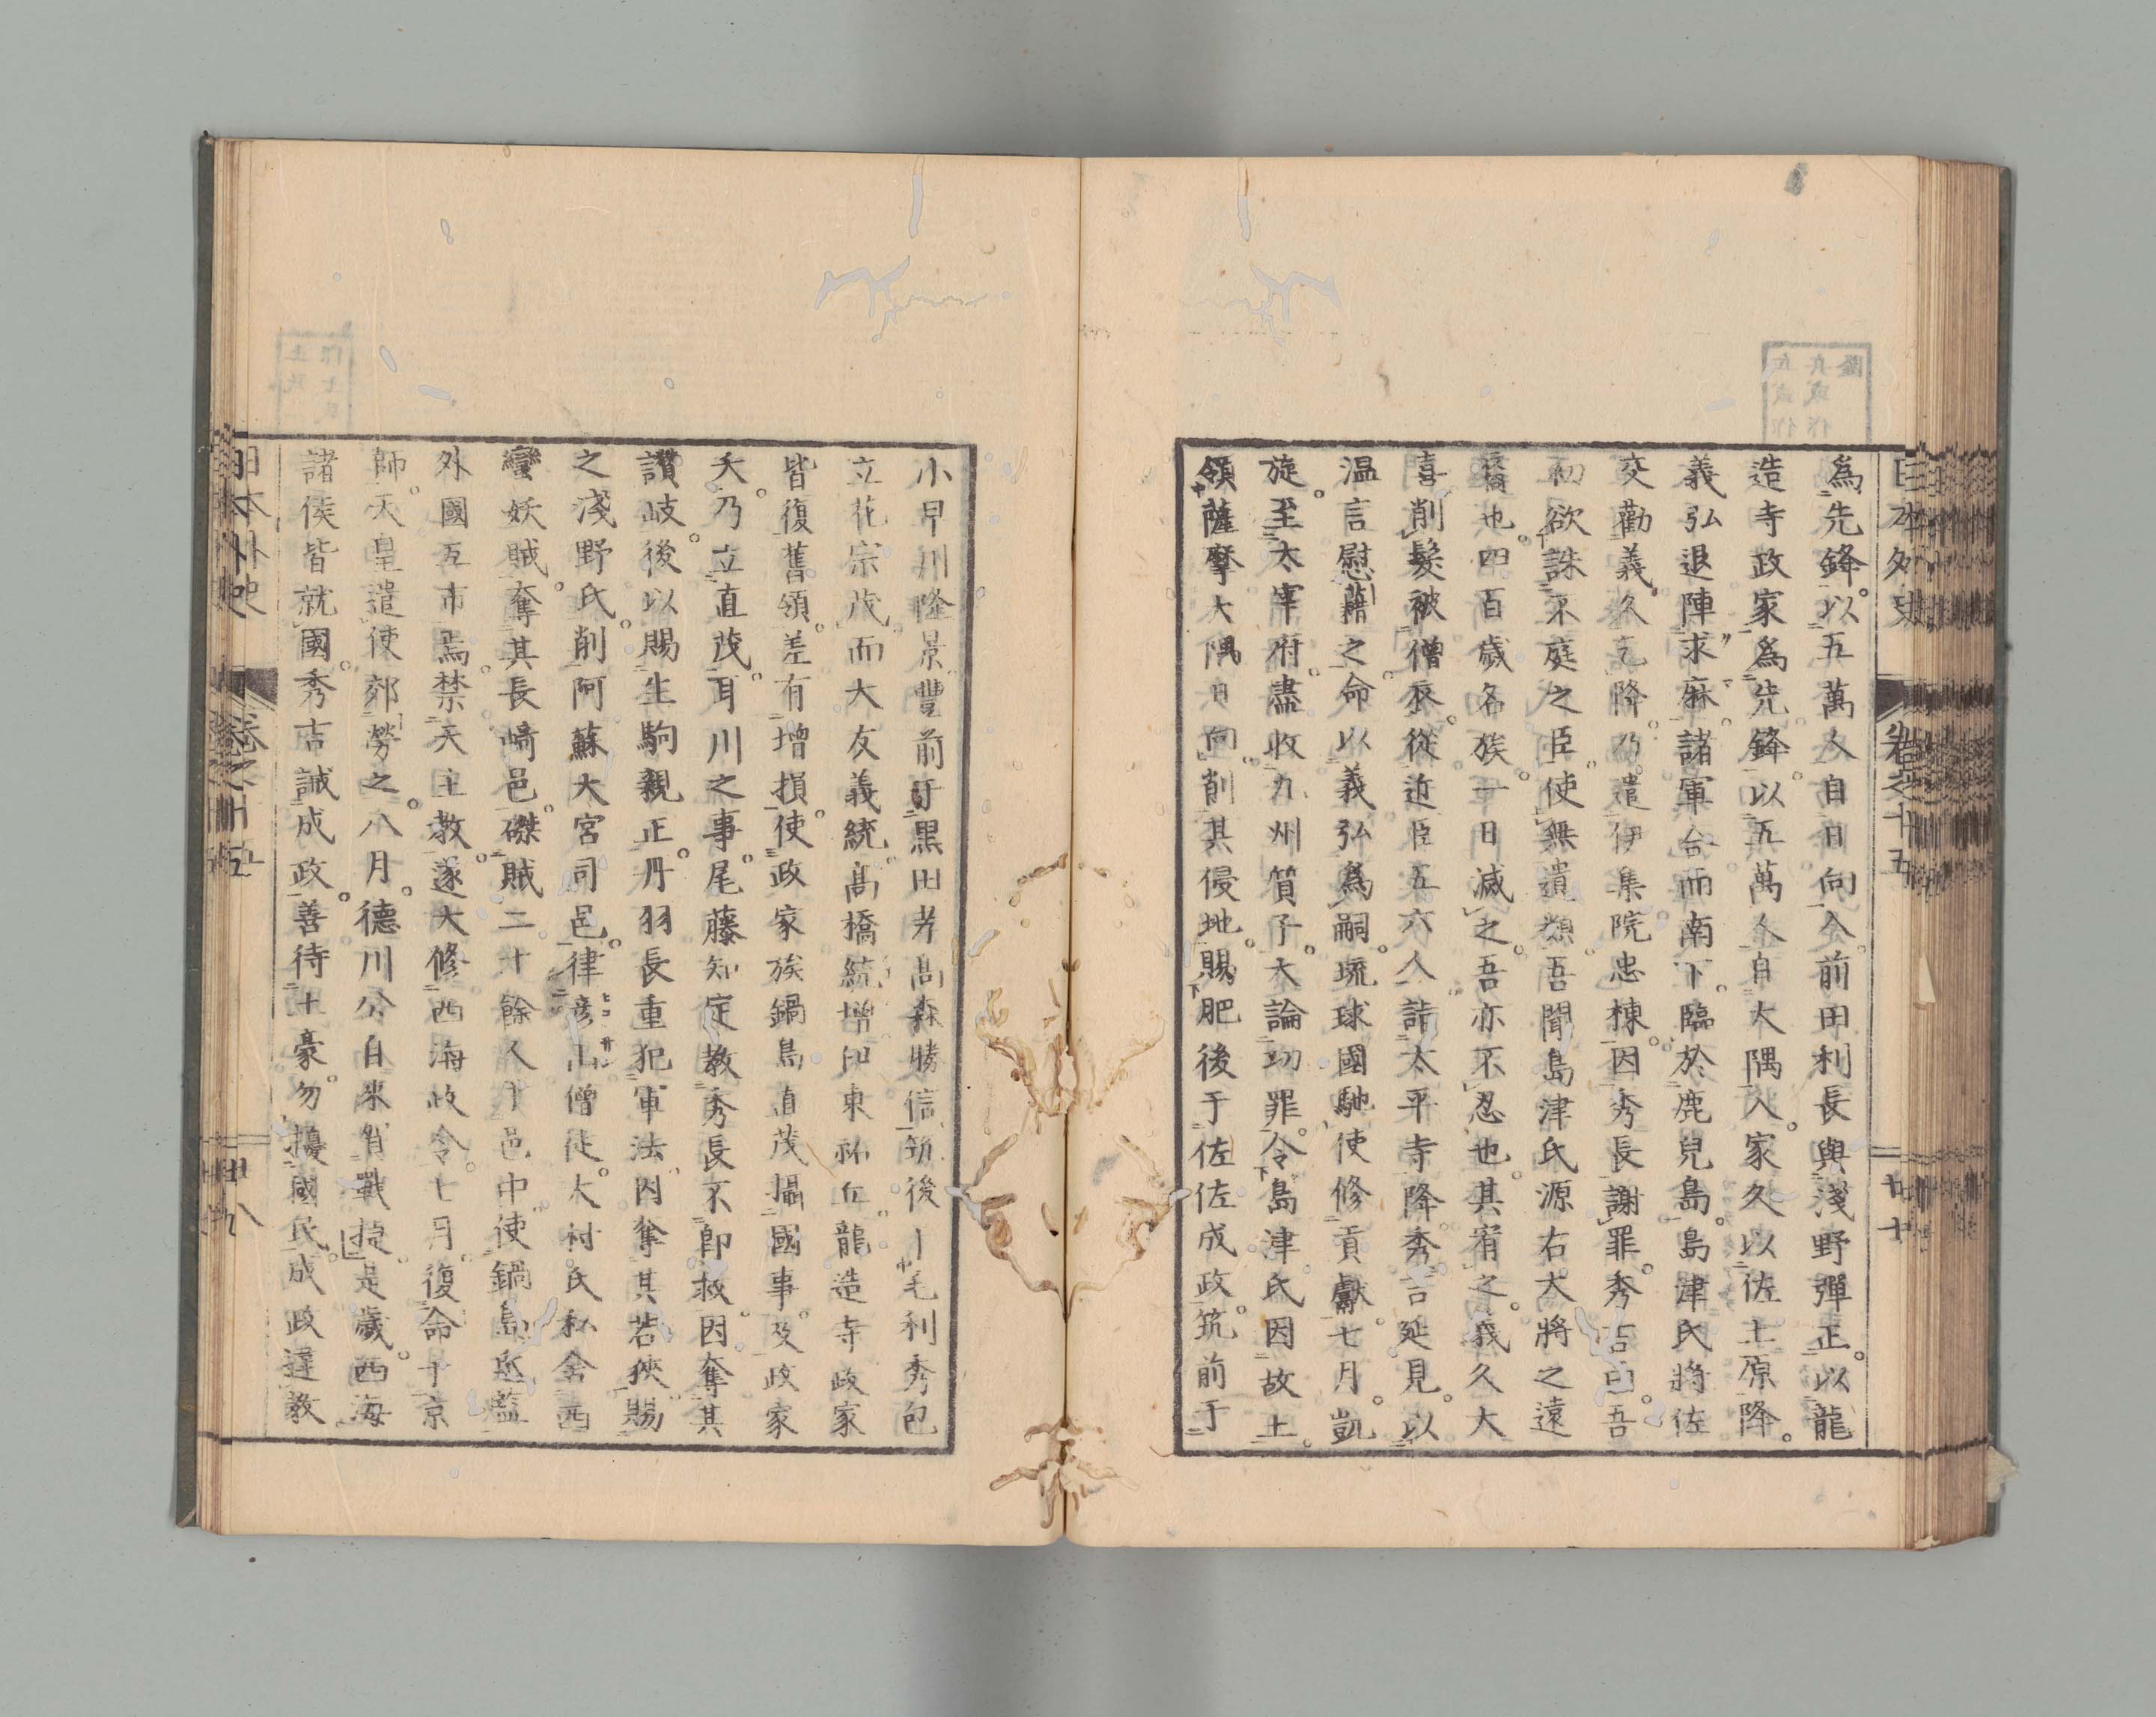 日本外史 卷之十五
爲先鋒。以五萬人自日向入。前田利長與淺野彈正。以龍
造寺政家爲先鋒。以五萬人自大隅入。家久以佐土原降。
義弘退陣求麻。諸軍合而南下。臨於鹿兒島。島津氏將佐
交勸義久乞降。乃遣伊集院忠棟。因秀長謝罪。秀吉曰。吾
初欲誅不庭之臣。使無遺類。吾聞島津氏源右大將之遠
裔也。四百歲名族。一日滅之。吾亦不忍也。其宥之。義久大
喜。削髮被僧衣。從近臣五六人。詣太平寺降。秀吉延見。以
温言慰藉之。命以義弘爲嗣。琉球國馳使修貢獻。七月。凱
旋。至太宰府。盡收九州質子。大論功罪。令島津氏因故土。
領薩摩大隅日向。削其侵地。賜肥後于佐佐成政。筑前于
小早川隆景。豐前于黒田孝高森勝信。筑後于毛利秀包
立花宗茂。而大友義統高橋統増伊東祐丘龍造寺政家
皆復舊領。差有増損。使政家族鍋島直茂攝國事。及政家
夭。乃立直茂。耳川之事。尾藤知定教秀長不即救。因奪其
讃岐。後以賜生駒親正。丹羽長重犯軍法。因奪其若狹。賜
之淺野氏。削阿蘇大宮司邑。律彦山僧徒。大村氏私舍西
蠻妖賊。奪其長﨑邑。磔賊二十餘人于邑中。使鍋島氏監
外國互市焉。禁天主教。遂大修西海政令。七月。復命于京
師。天皇遣使郊勞之。八月。德川公自來賀戰捷。是歲。西海
諸侯皆就國。秀吉誡成政。善待土豪。勿擾國民。成政違教
日本外史 卷之十五